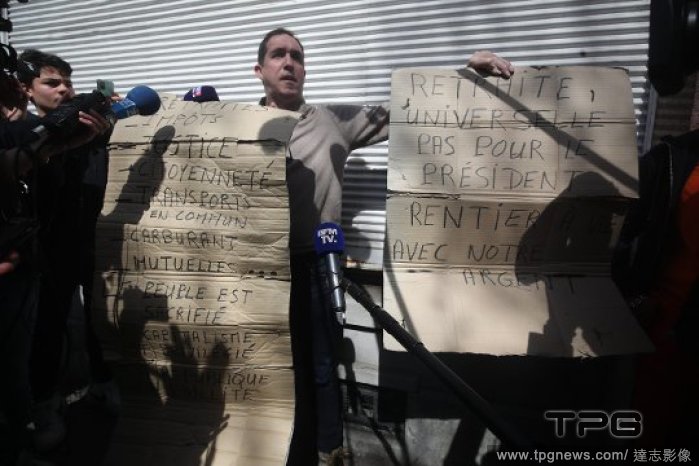 IMPÔTS
JUSTICE
- CITOYENNETÉ
- TRANSPORTS
EN COMMUN
- CARBURANT
- MUTUELLES
LE PEUPLE EST
SACRIFIÉ
RETRAITE,
UNIVERSELLE
PAS POUR LE
PRÉSIDENT
RENTIER
AVEC NOTRE
ARGENT
BFM
TV.
TPG
www.tpgnews.com/ 達志影像